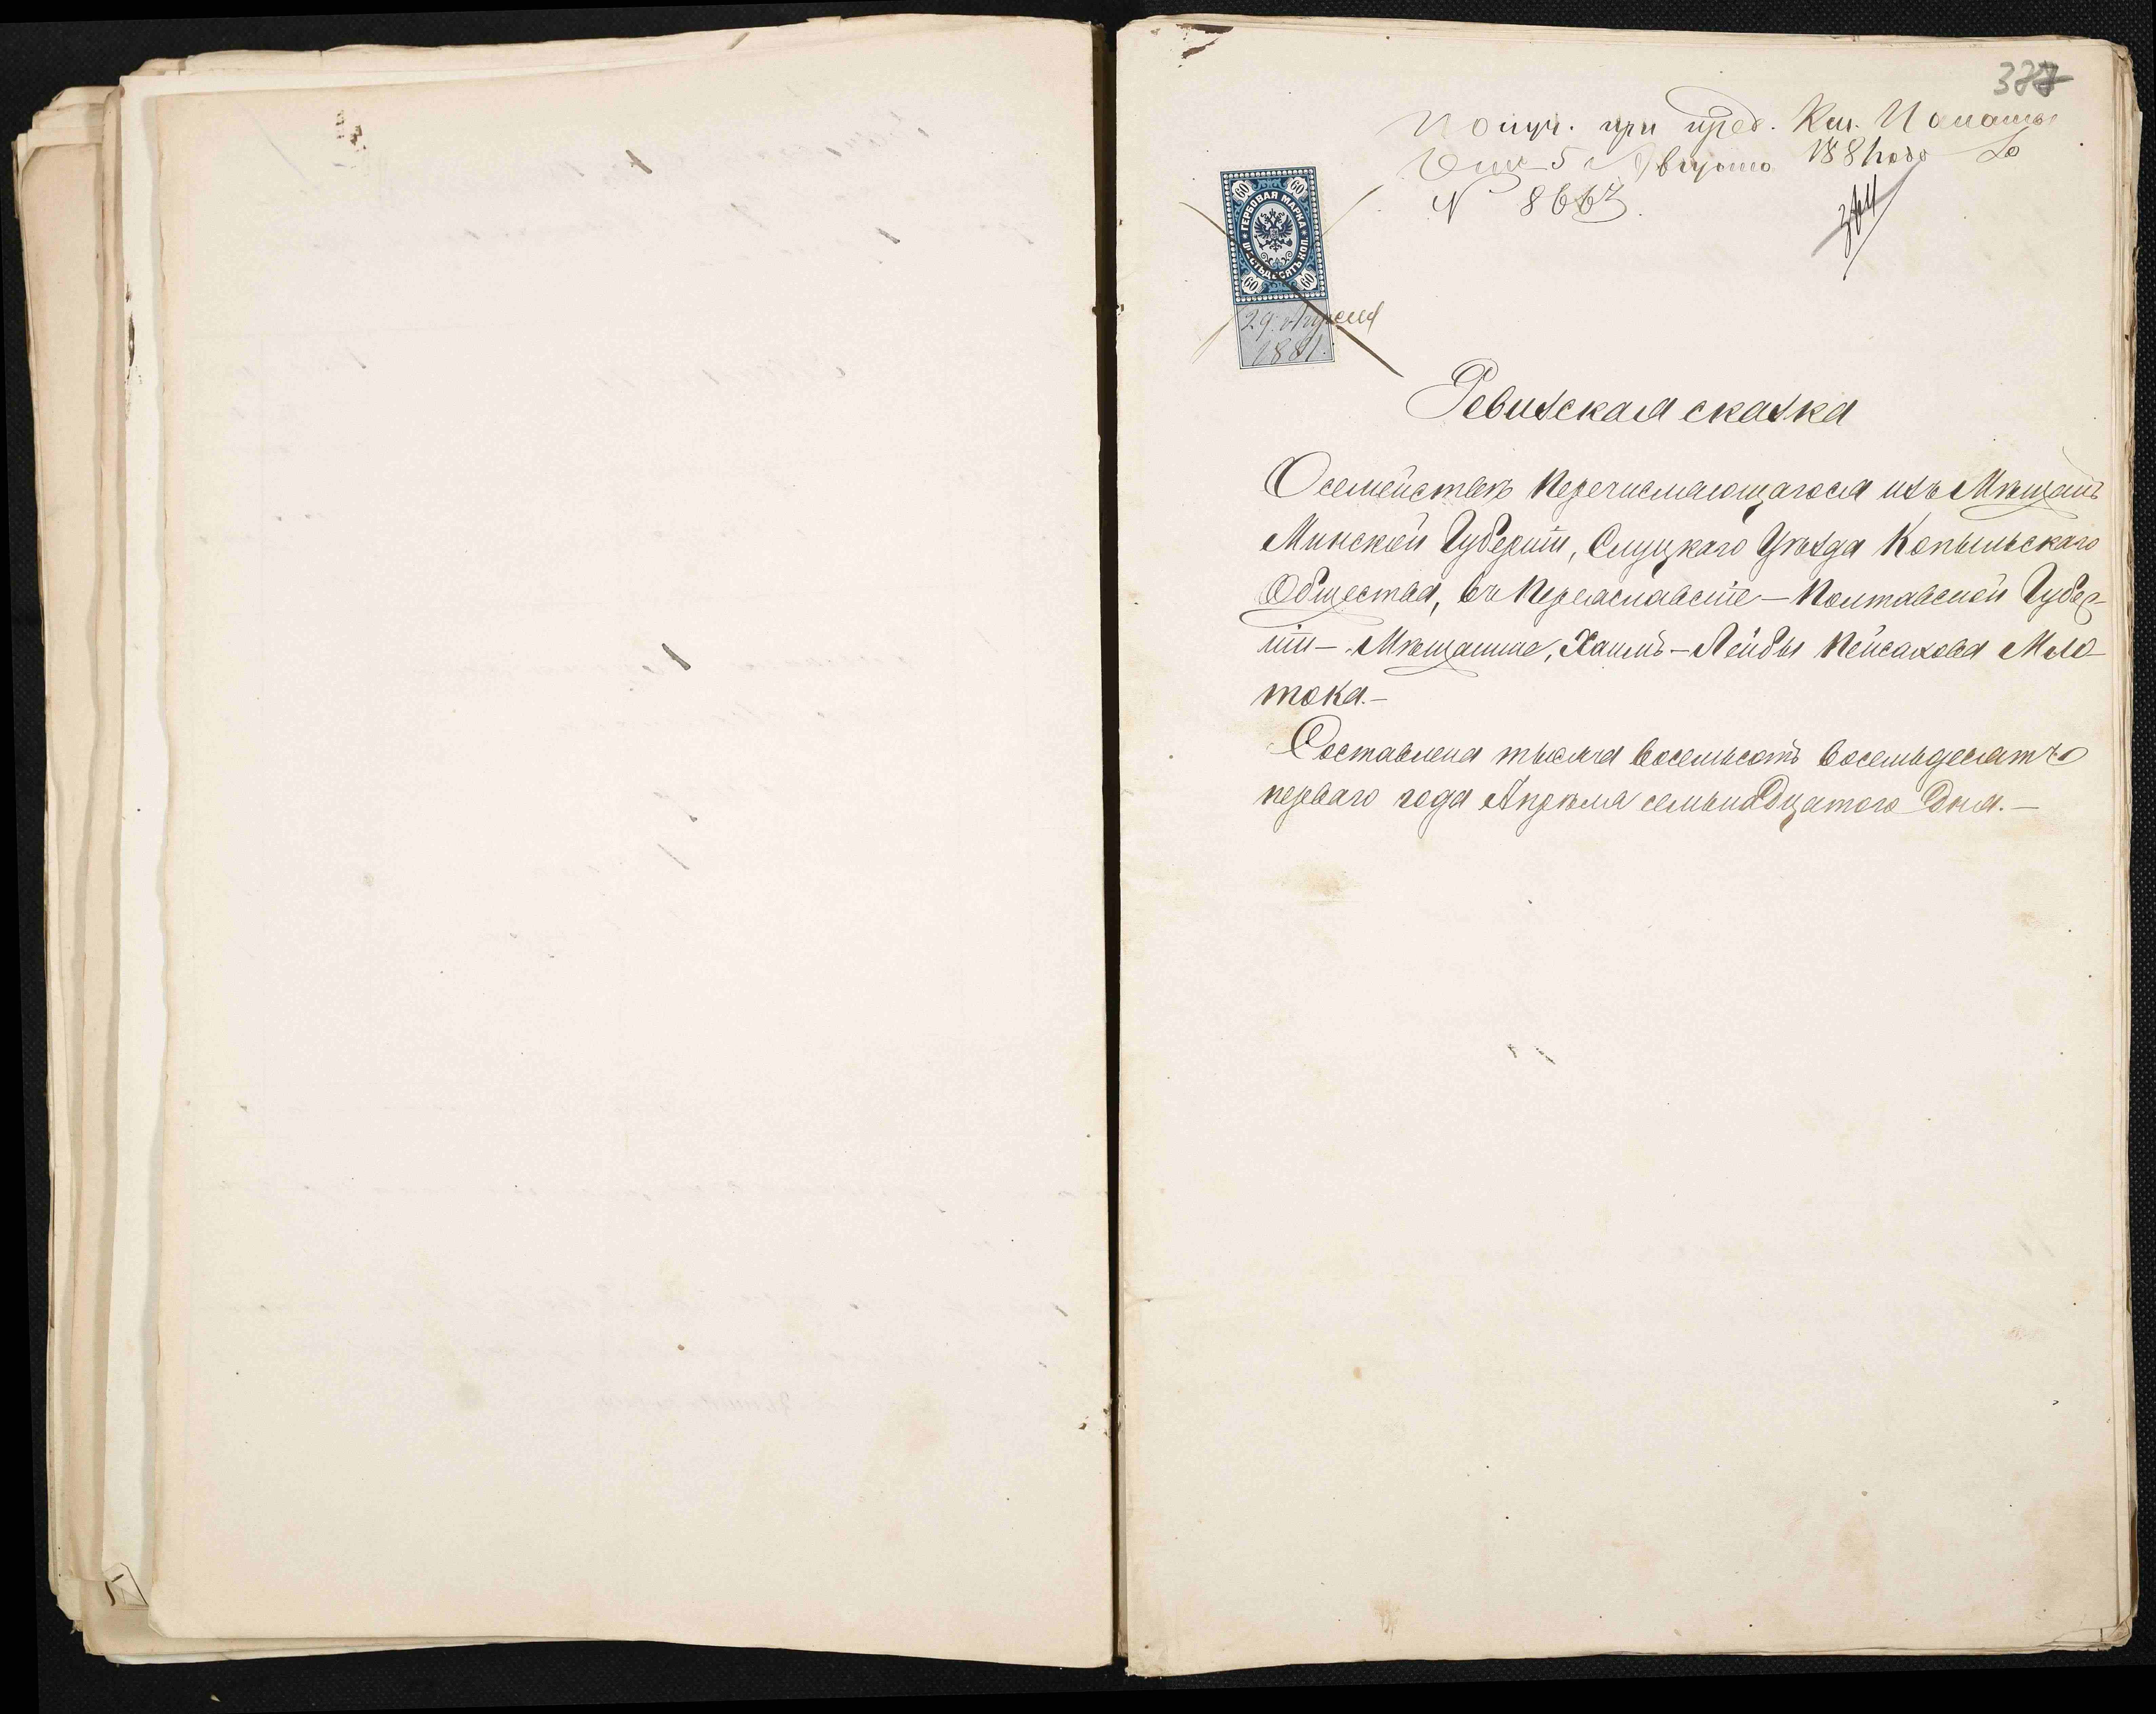 Получ. при пред. Каз. Палаты
5 Августа 1881 года За
№ 8663
60 60
ГЕРБОВАЯ МАРКА
ШЕСТЬДЕСЯТЪ КОП.
60 60
29 Апреля
1881.
Ревизская сказка
О семействѣ перечисляющагося изъ Мѣщанъ
Минской Губерніи, Слуцкаго Уѣзда Копыльскаго
Общества, въ Переяславскіе – Полтавской Губер-
ніи – Мѣщанине, Хаимъ – Лейбы Пейсахова Мло-
тока. –
Составлена тысяча восемьсотъ восемьдесятъ
перваго года Апрѣля семьнадцатого дня. –